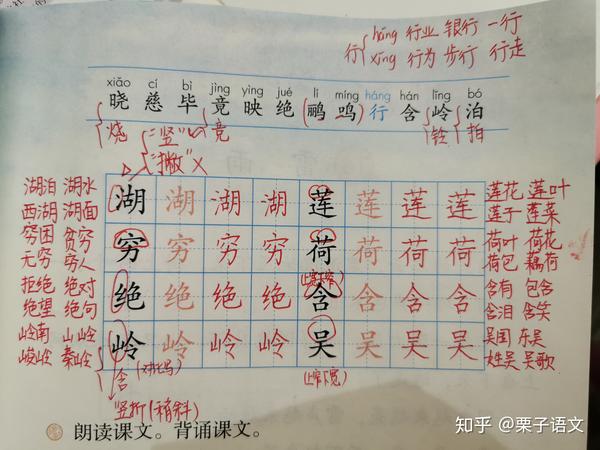 háng 行业 银行 一行
行
xíng 行为 步行 行走
xiǎo cí bì jìng yìng jué lí míng háng hán lǐng bó
晓 慈 毕 竟 映 绝 鹂 鸣 行 含 岭 泊
烧 "竖" 竞 铃 拍
"撇" X
湖泊 湖水 湖 湖 湖 湖 莲 莲 莲 莲 莲花 莲叶
西湖 湖面 莲子 莲菜
穷困 贫穷 穷 穷 穷 穷 荷 荷 荷 荷 荷叶 荷花
无穷 穷人 荷包 藕荷
拒绝 绝对 绝 绝 绝 绝 含 含 含 含 含有 包含
绝望 绝句 含泪 含笑
岭南 山岭 岭 岭 岭 岭 吴 吴 吴 吴 吴国 东吴
峻岭 秦岭 姓吴 吴歌
含
(上窄下宽)
竖折(稍斜)
朗读课文。背诵课文。
知乎 @栗子语文